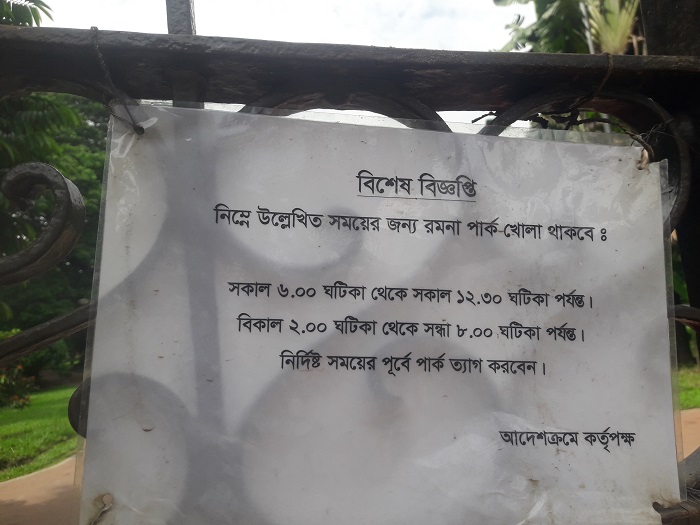 বিশেষ বিজ্ঞপ্তি
নিম্নে উল্লেখিত সময়ের জন্য রমনা পার্ক-খোলা থাকবে ঃ
সকাল ৬.০০ ঘটিকা থেকে সকাল ১২.৩০ ঘটিকা পর্যন্ত।
বিকাল ২.০০ ঘটিকা থেকে সন্ধা ৮.০০ ঘটিকা পর্যন্ত।
নির্দিষ্ট সময়ের পূর্বে পার্ক ত্যাগ করবেন।
আদেশক্রমে কর্তৃপক্ষ